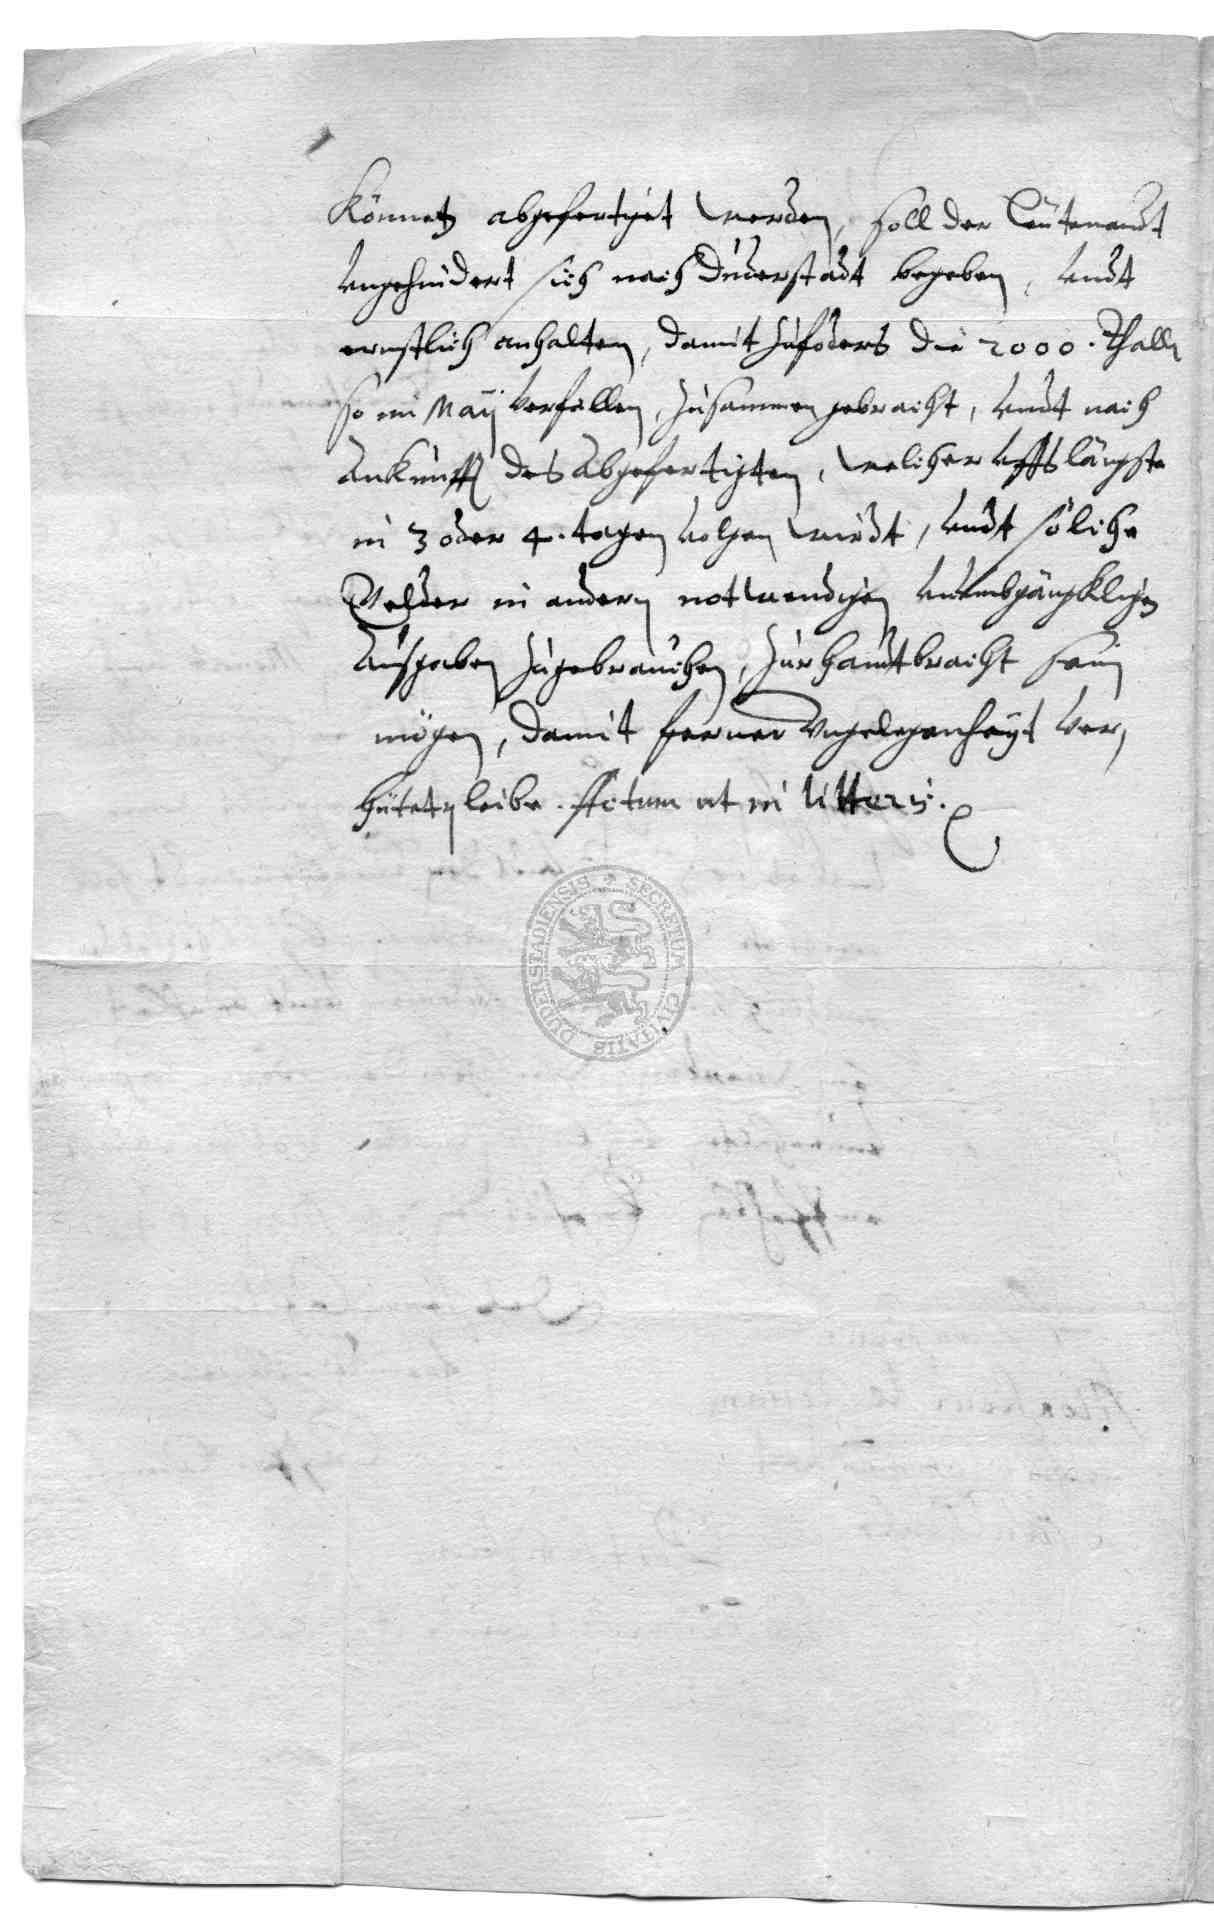 können abgefertiget werden, soll der Leutenandt
ungehindert sich nach Duderstadt begeben, undt
ernstlich anhalten, damit zufoders die 2000. Thall
so im Maij verfallen, zusammen gebracht, undt nach
Ankunfft des Abgefertigten, welicher uffs längste
in 3 oder 4. tagen volgen wirdt, undt soliche
Gelder in andern notwendigen unumbgängkligen
Ausgaben zugebrauchen, zur handt bracht sein
mögen, damit ferner Ungelegenheÿt ver,
hütet pleibe. Actum ut in litteris.
SECRETUM CIVITATIS DUDERSTADIENSIS